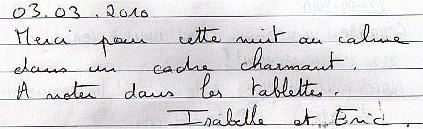 03.03.2010
Merci pour cette nuit au calme
dans un cadre charmant.
A noter dans les tablettes.
Isabelle et Eric.